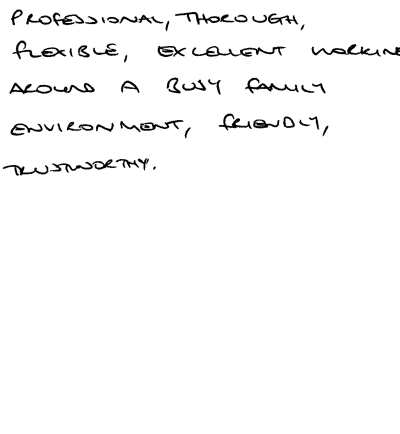 PROFESSIONAL, THOROUGH,
FLEXIBLE, EXCELLENT WORKING
AROUND A BUSY FAMILY
ENVIRONMENT, FRIENDLY,
TRUSTWORTHY.